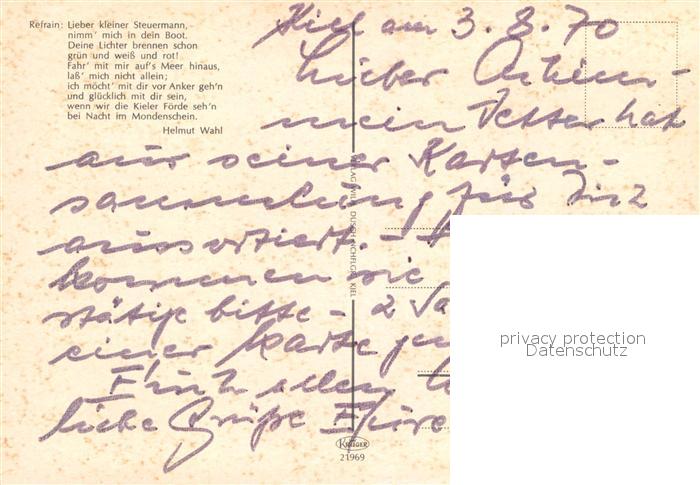 Refrain: Lieber kleiner Steuermann,
nimm' mich in dein Boot.
Deine Lichter brennen schon
grün und weiß und rot!
Fahr' mit mir auf's Meer hinaus,
laß' mich nicht allein;
ich möcht' mit dir vor Anker geh'n
und glücklich mit dir sein,
wenn wir die Kieler Förde seh'n
bei Nacht im Mondenschein.
Helmut Wahl
Kiel am 3. 8. 70
Lieber Achim –
mein Vetter hat
aus seiner Karten-
sammlung für Dich
aussortiert. –
kommen sie
stätige bitte – 2
einer Karte
allen
liebe Grüße Eure
VERLAG WILH. DUSCH NCHFLGR. KIEL
KRÜGER
21969
privacy protection
Datenschutz